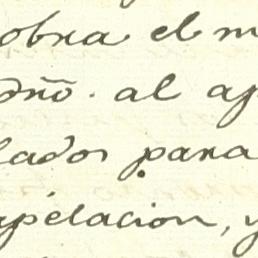 obra el m
dño. al ap
lados para
apelacion, y